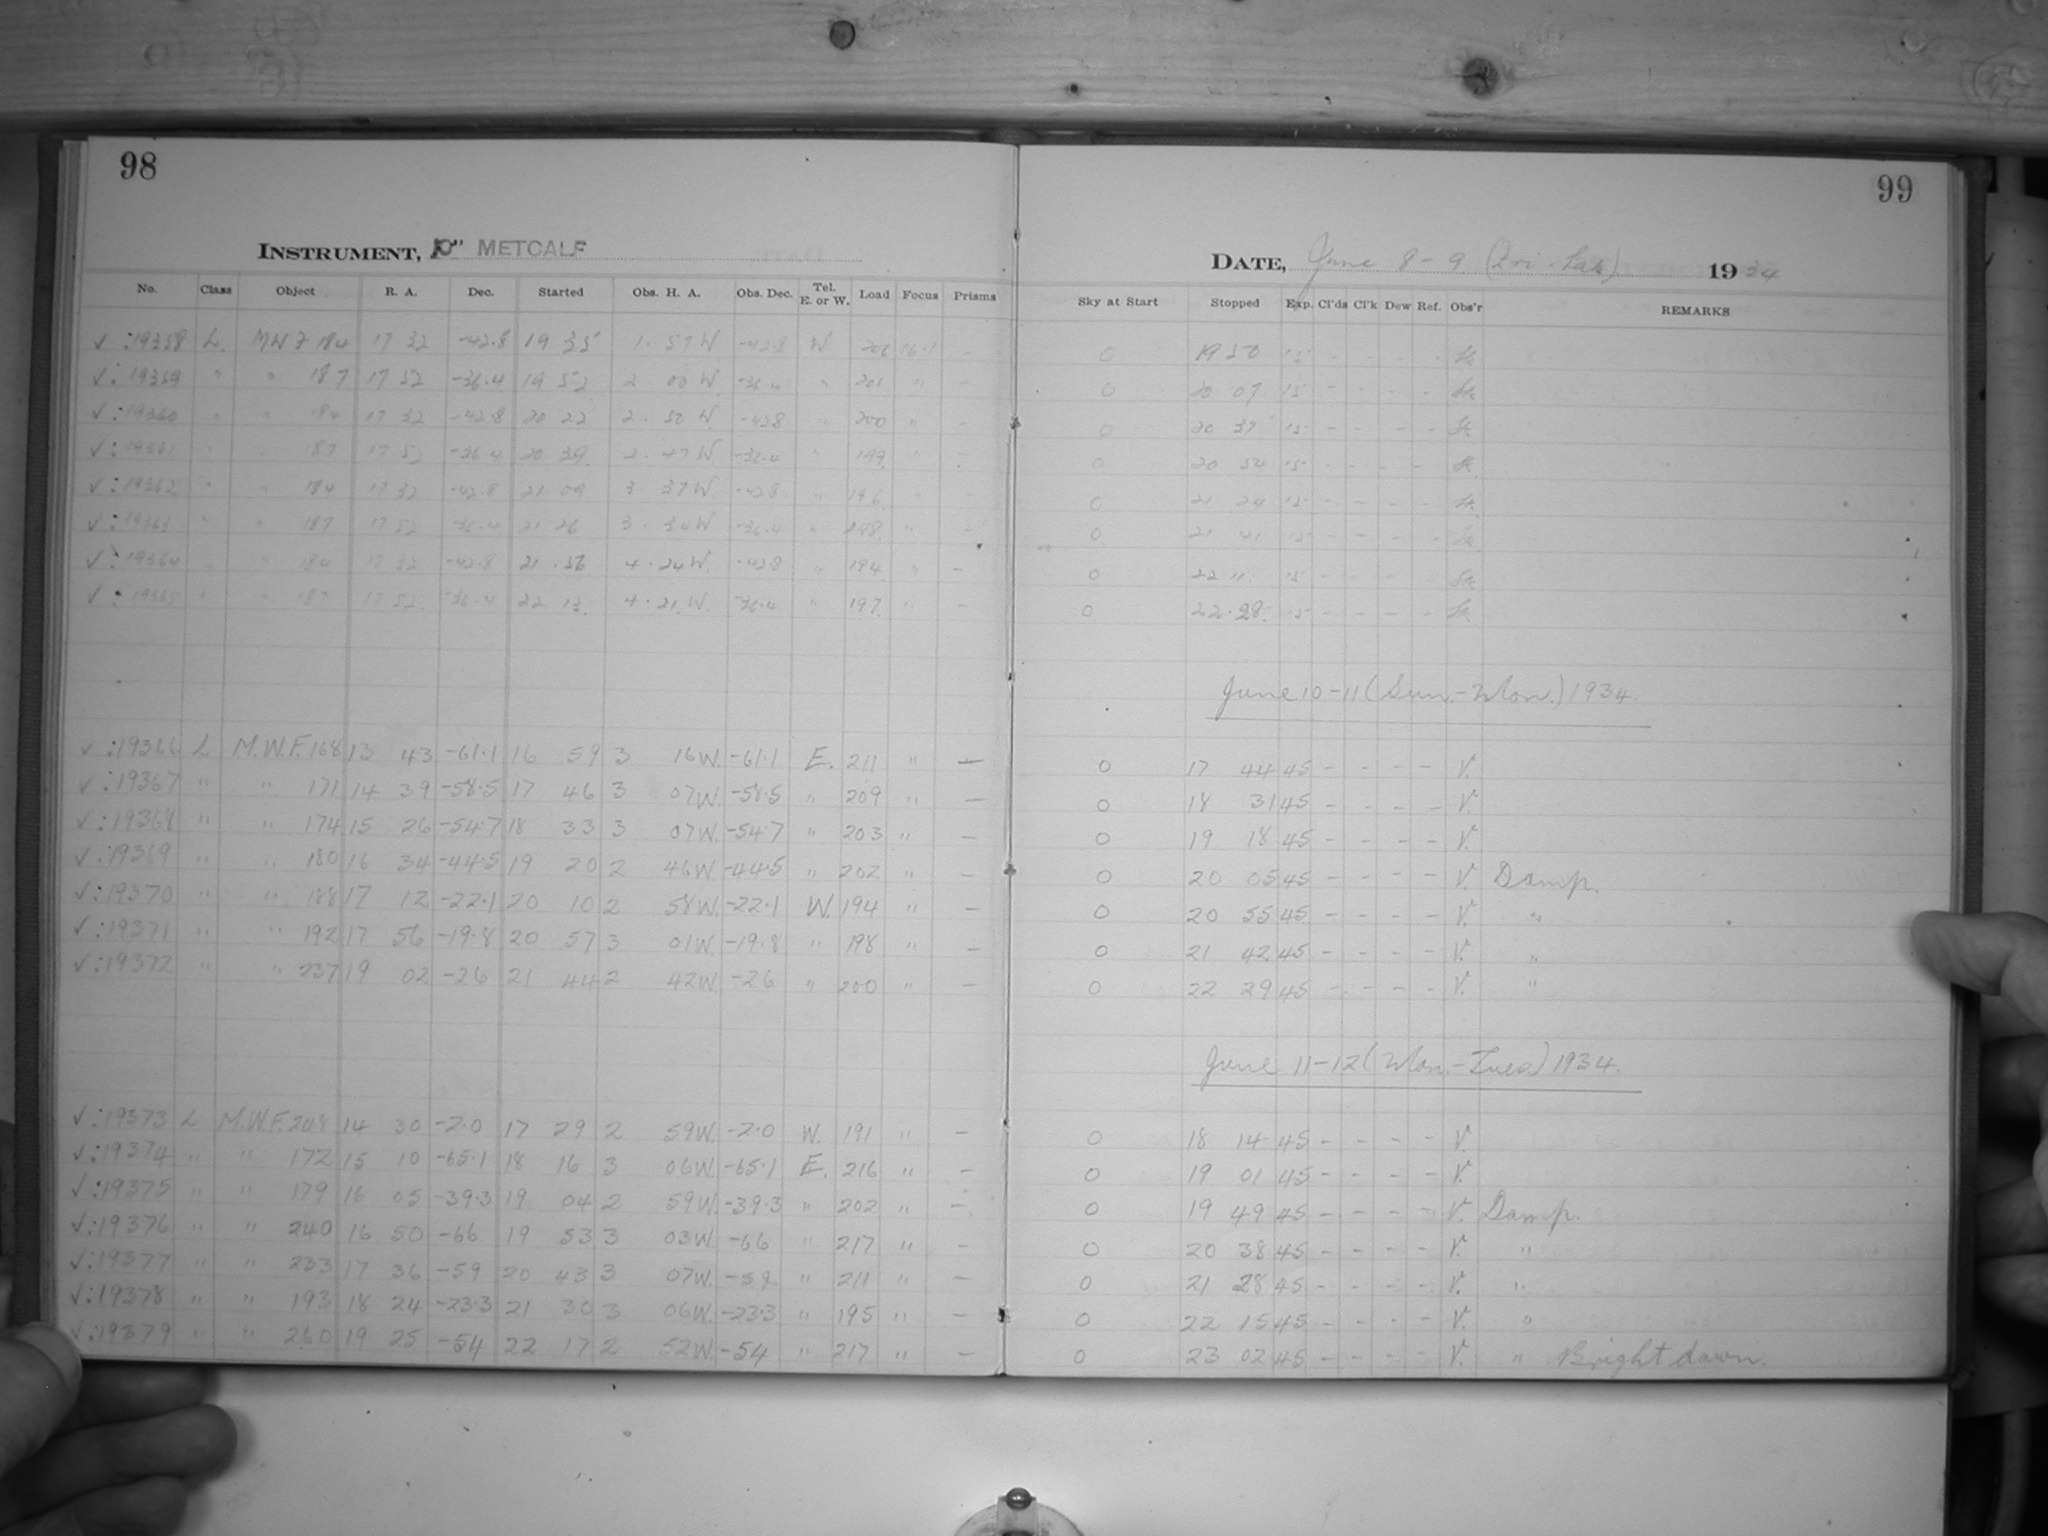 98
INSTRUMENT, 10" METCALF
No. Class Object R. A. Dec. Started Obs. H. A. Obs. Dec. Tel. E. or W. Load Focus Prisms
√ :19358 L. MWF 184 17 32 -42.8 19 35 1. 57 W -42.8 W 206 16.1 -
√ : 19359 " " 187 17 52 -36.4 19 52 2 00 W. -36.4 " 201 " -
√ : 19360 " " 184 17 32 -42.8 20 22 2. 50 W. -42.8 " 200 " -
√ : 19361 " " 187 17 52 -36.4 20 39 2. 47 W. -36.4 " 199 " -
√ : 19362 " " 184 17 32 -42.8 21 09 3 37 W -42.8 " 196 " -
√ : 19363 " " 187 17 52 -36.4 21 26 3. 34 W -36.4 " 198 " -
√ : 19364 " " 184 17 32 -42.8 21 . 56 4. 24 W. -42.8 " 194 " -
√ : 19365 " " 187 17 52 -36.4 22 13. 4. 21. W. -36.4 " 197. " -
√ :19366 L M.W.F. 168 13 43 -61.1 16 59 3 16 W. -61.1 E. 211 " -
√ :19367 " " 171 14 39 -58.5 17 46 3 07 W. -58.5 " 209 " -
√ :19368 " " 174 15 26 -54.7 18 33 3 07 W. -54.7 " 203 " -
√ :19369 " " 180 16 34 -44.5 19 20 2 46 W. -44.5 " 202 " -
√ :19370 " " 188 17 12 -22.1 20 10 2 58 W. -22.1 W. 194 " -
√ :19371 " " 192 17 56 -19.8 20 57 3 01 W. -19.8 " 198 " -
√ :19372 " " 237 19 02 -26 21 44 2 42 W. -26 " 200 " -
√ :19373 L M.W.F. 248 14 30 -2.0 17 29 2 59 W. -2.0 W. 191 " -
√ :19374 " " 172 15 10 -65.1 18 16 3 06 W. -65.1 E. 216 " -
√ :19375 " " 179 16 05 -39.3 19 04 2 59 W. -39.3 " 202 " -
√ :19376 " " 240 16 50 -66 19 53 3 03 W. -66 " 217 " -
√ :19377 " " 233 17 36 -59 20 43 3 07 W. -59 " 211 " -
√ :19378 " " 193 18 24 -23.3 21 30 3 06 W. -23.3 " 195 " -
√ :19379 " " 260 19 25 -54 22 17 2 52 W. -54 " 217 " -
99
DATE, June 8 - 9 (Fri - Sat) 1934
Sky at Start Stopped Exp. Cl'ds Cl'k Dew Ref. Obs'r REMARKS
0 19 50 15 - - - -
0 20 07 15 - - - -
0 20 37 15 - - - -
0 20 54 15 - - - -
0 21 24 15 - - - -
0 21 41 15 - - - -
0 22 11 15 - - - -
0 22. 28. 15 - - - -
June 10-11 (Sun.-Mon.) 1934.
0 17 44 45 - - - - V.
0 18 31 45 - - - - V.
0 19 18 45 - - - - V.
0 20 05 45 - - - - V. Damp.
0 20 55 45 - - - - V. "
0 21 42 45 - - - - V. "
0 22 29 45 - - - - V. "
June 11-12 (Mon.-Tues) 1934.
0 18 14 45 - - - - V.
0 19 01 45 - - - - V.
0 19 49 45 - - - - V. Damp.
0 20 38 45 - - - - V. "
0 21 28 45 - - - - V. "
0 22 15 45 - - - - V. "
0 23 02 45 - - - - V. " Bright dawn.